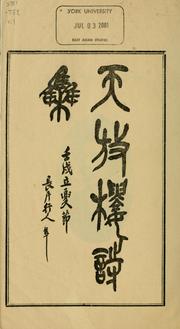 YORK UNIVERSITY
JUL 03 2001
EAST ASIAN STUDIES
天放樓詩
集
壬戌立夏節